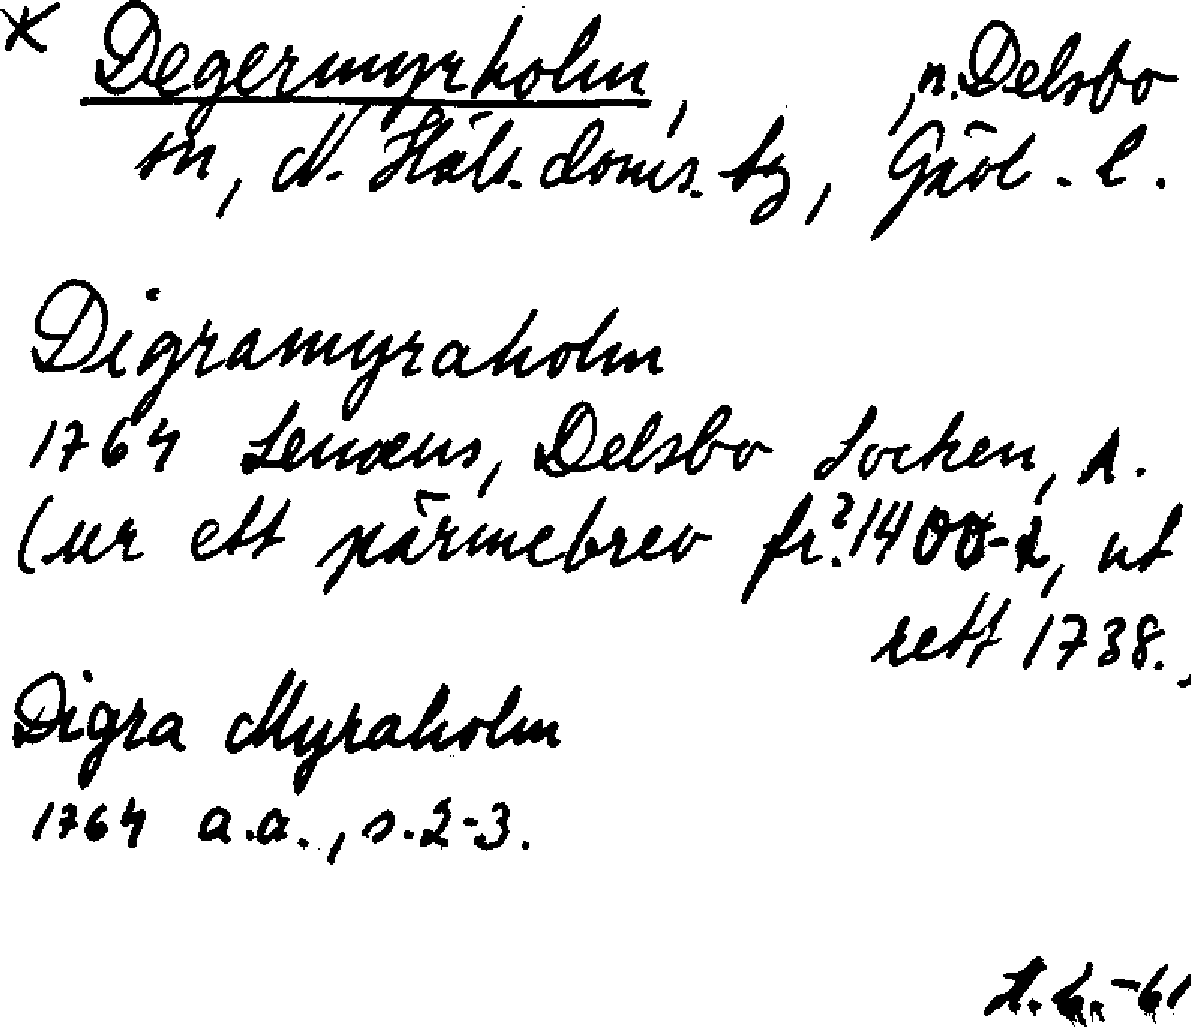 * Degermyrholm, , n. Delsbo
sn, N. Häls. doms. tg, Gävl. l.
Digramyraholm
1764 Lenæus, Delsbo Socken, s.
(ur ett pärmebrev fr.? 1400-t, ut
rett 1738.,
Digra Myraholm
1764 a.a., s. 2-3.
-61